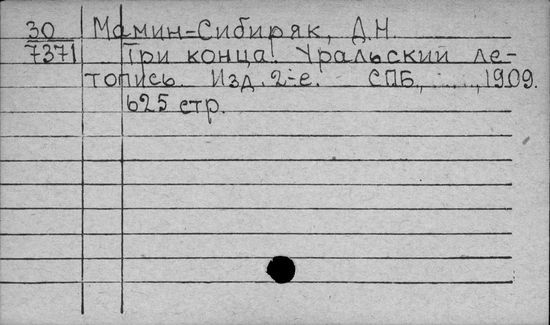 30 Мамин-Сибиряк, Д.Н.
7371 Три конца. Уральский ле-
топись. Изд. 2-е. СПБ., ..., 1909.
625 стр.